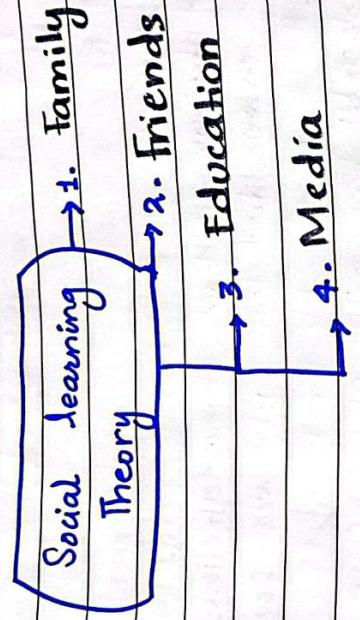 Social learning
Theory
1. Family
2. Friends
3. Education
4. Media